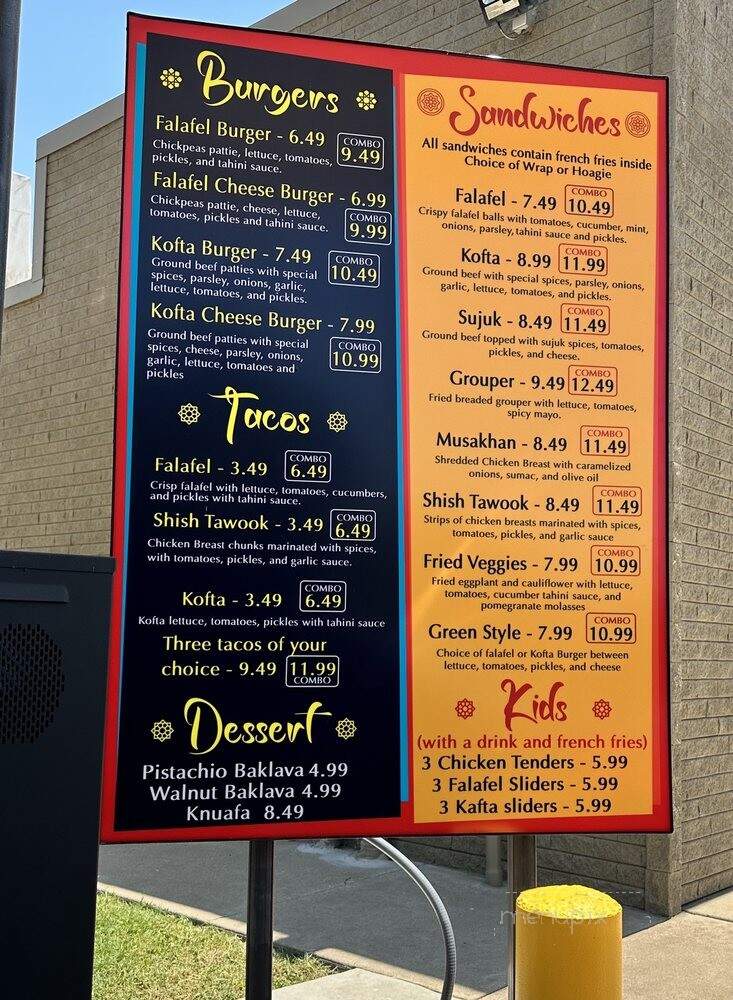 Burgers
Falafel Burger - 6.49
COMBO
9.49
Chickpeas pattie, lettuce, tomatoes,
pickles, and tahini sauce.
Falafel Cheese Burger - 6.99
COMBO
9.99
Chickpeas pattie, cheese, lettuce,
tomatoes, pickles and tahini sauce.
Kofta Burger - 7.49
COMBO
10.49
Ground beef patties with special
spices, parsley, onions, garlic,
lettuce, tomatoes, and pickles.
Kofta Cheese Burger - 7.99
COMBO
10.99
Ground beef patties with special
spices, cheese, parsley, onions,
garlic, lettuce, tomatoes and
pickles
Tacos
Falafel - 3.49
COMBO
6.49
Crisp falafel with lettuce, tomatoes, cucumbers,
and pickles with tahini sauce.
Shish Tawook - 3.49
COMBO
6.49
Chicken Breast chunks marinated with spices,
with tomatoes, pickles, and garlic sauce.
Kofta - 3.49
COMBO
6.49
Kofta lettuce, tomatoes, pickles with tahini sauce
Three tacos of your
choice - 9.49
11.99
COMBO
Dessert
Pistachio Baklava 4.99
Walnut Baklava 4.99
Knuafa 8.49
Sandwiches
All sandwiches contain french fries inside
Choice of Wrap or Hoagie
Falafel - 7.49
COMBO
10.49
Crispy falafel balls with tomatoes, cucumber, mint,
onions, parsley, tahini sauce and pickles.
Kofta - 8.99
COMBO
11.99
Ground beef with special spices, parsley, onions,
garlic, lettuce, tomatoes, and pickles.
Sujuk - 8.49
COMBO
11.49
Ground beef topped with sujuk spices, tomatoes,
pickles, and cheese.
Grouper - 9.49
COMBO
12.49
Fried breaded grouper with lettuce, tomatoes,
spicy mayo.
Musakhan - 8.49
COMBO
11.49
Shredded Chicken Breast with caramelized
onions, sumac, and olive oil
Shish Tawook - 8.49
COMBO
11.49
Strips of chicken breasts marinated with spices,
tomatoes, pickles, and garlic sauce
Fried Veggies - 7.99
COMBO
10.99
Fried eggplant and cauliflower with lettuce,
tomatoes, cucumber tahini sauce, and
pomegranate molasses
Green Style - 7.99
COMBO
10.99
Choice of falafel or Kofta Burger between
lettuce, tomatoes, pickles, and cheese
Kids
(with a drink and french fries)
3 Chicken Tenders - 5.99
3 Falafel Sliders - 5.99
3 Kafta sliders - 5.99
menupix